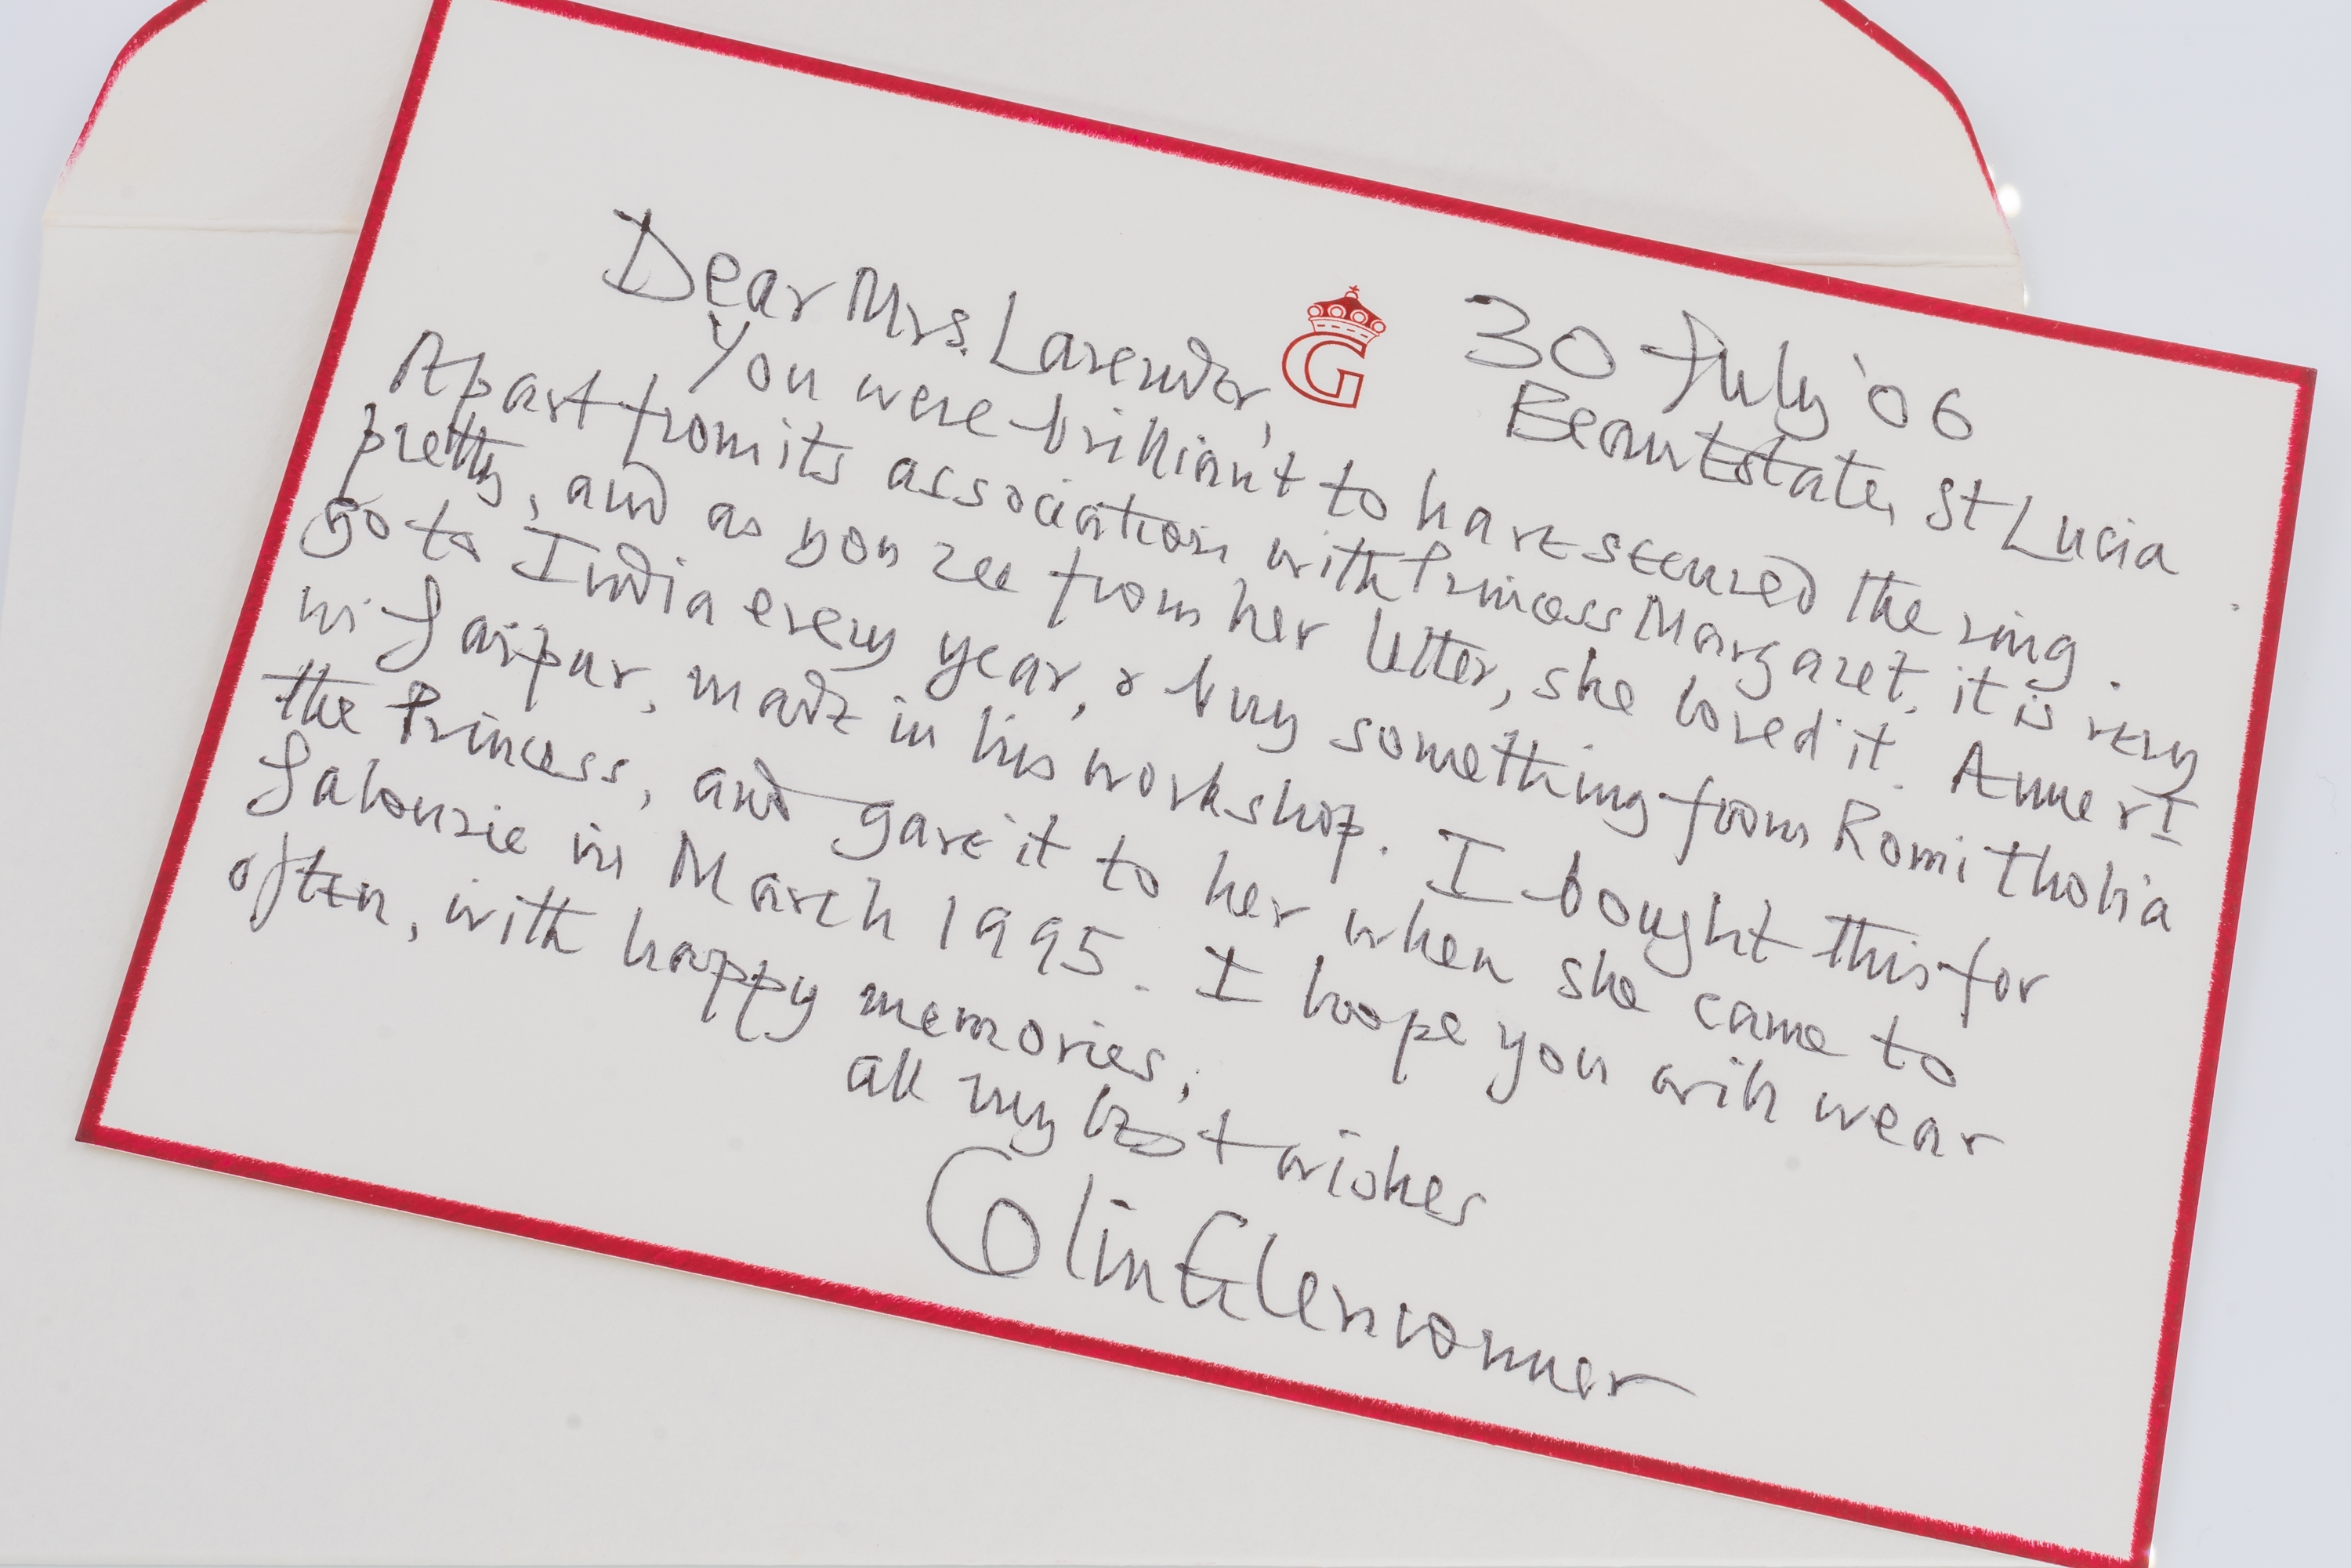 G
30 July '06
Beau Estate, St Lucia.
Dear Mrs. Lavender,
You were brilliant to have secured the ring.
Apart from its association with Princess Margaret, it is very
pretty, and as you see from her letter, she loved it. Anne & I
go to India every year, & buy something from Romi Tholia
in Jaipur, made in his workshop. I bought this for
the Princess, and gave it to her when she came to
Jalousie in March 1995. I hope you will wear
often, with happy memories,
all my best wishes
Colin Glenconner